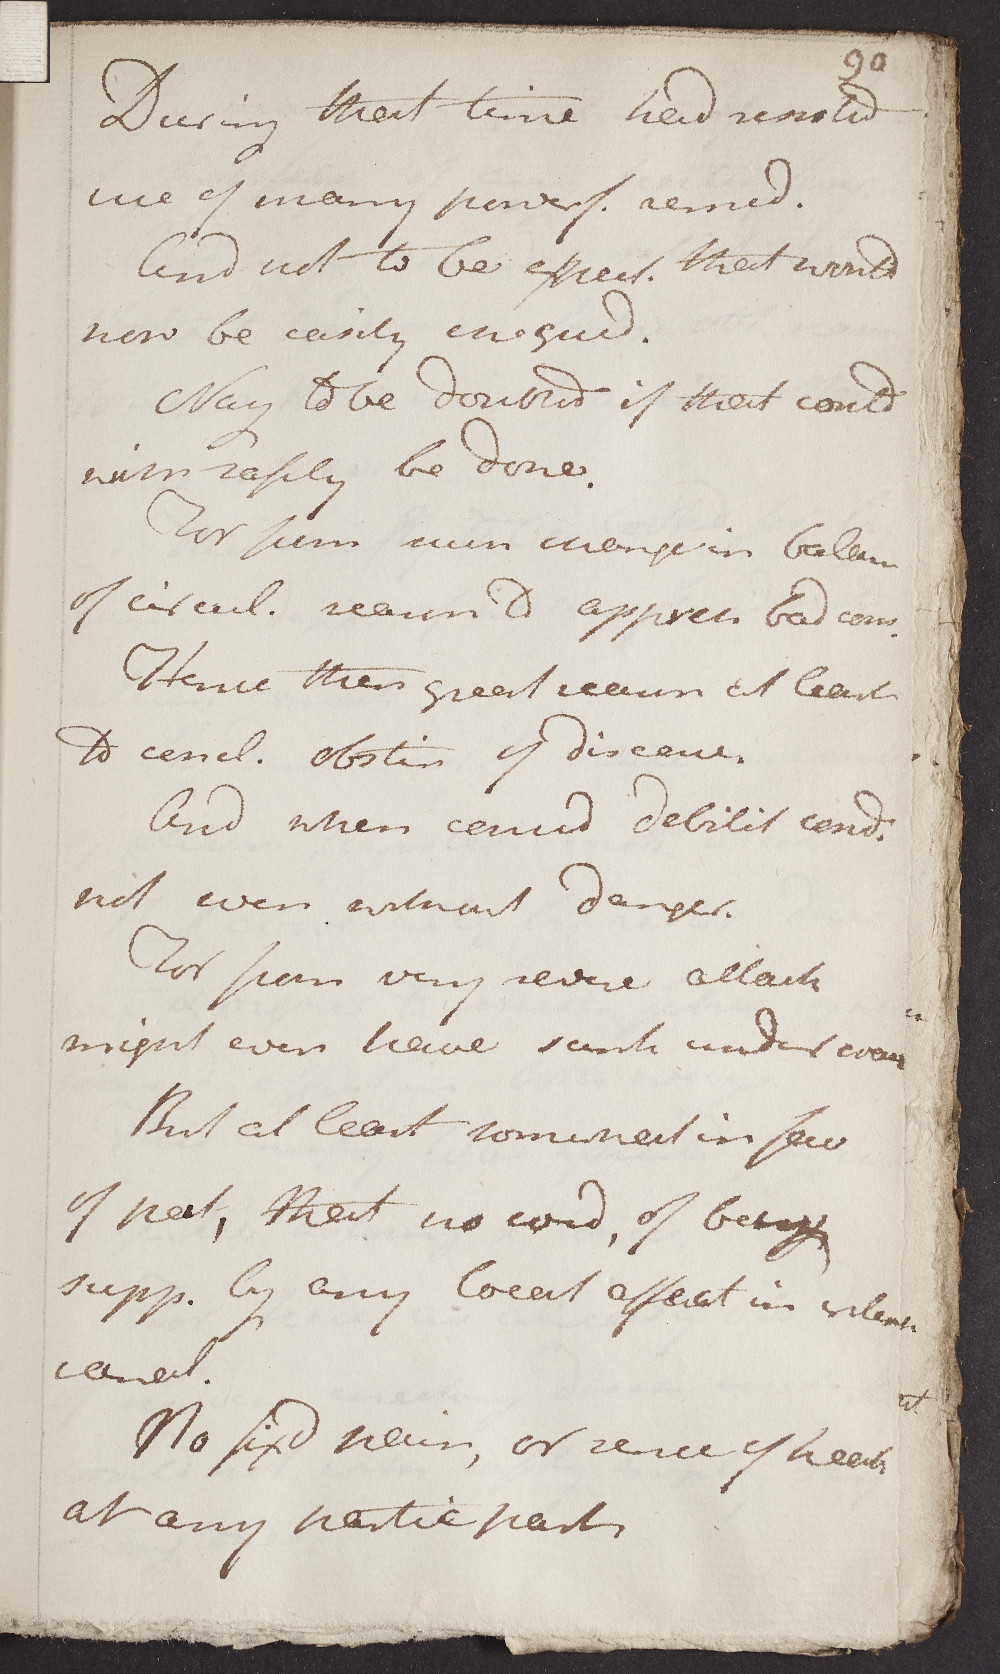 90
During that time had resisted
use of many powerf. remed.
And not to be expect. that would
now be easily
Nay to be doubted if that could
with safety be done.
For from
of circul. reason to bad cons.
Hence then great reason at least
to concl. obstin of disease.
And when debilit cond.
not even without danger.
For from very severe attack
might even have sunk under
But at least somewhat in fav
of pat, that no , of being
supp. by any local affect in
canal.
No fixd pain, or sense of heat
at any partic part